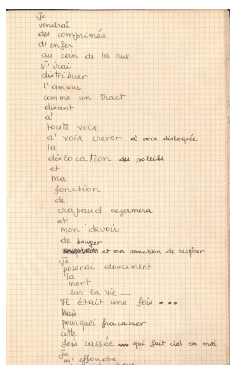 Je
vendrai
des comprimés
d'enfer
au coin de la rue
j'irai
distribuer
l'amour
comme un tract
disant
à
toute voix
à voix crever à voix disloquée
la
dislocation des soleils
et
ma
fonction
de
crapaud
et
mon devoir
de bouger
et ma sanction de respirer
je
poserai doucement
la
mort
sur la vie
Il était une fois ...
Mais
pourquoi fracasser
cette
fois cassée qui fait ciel en moi
je
m'effondre